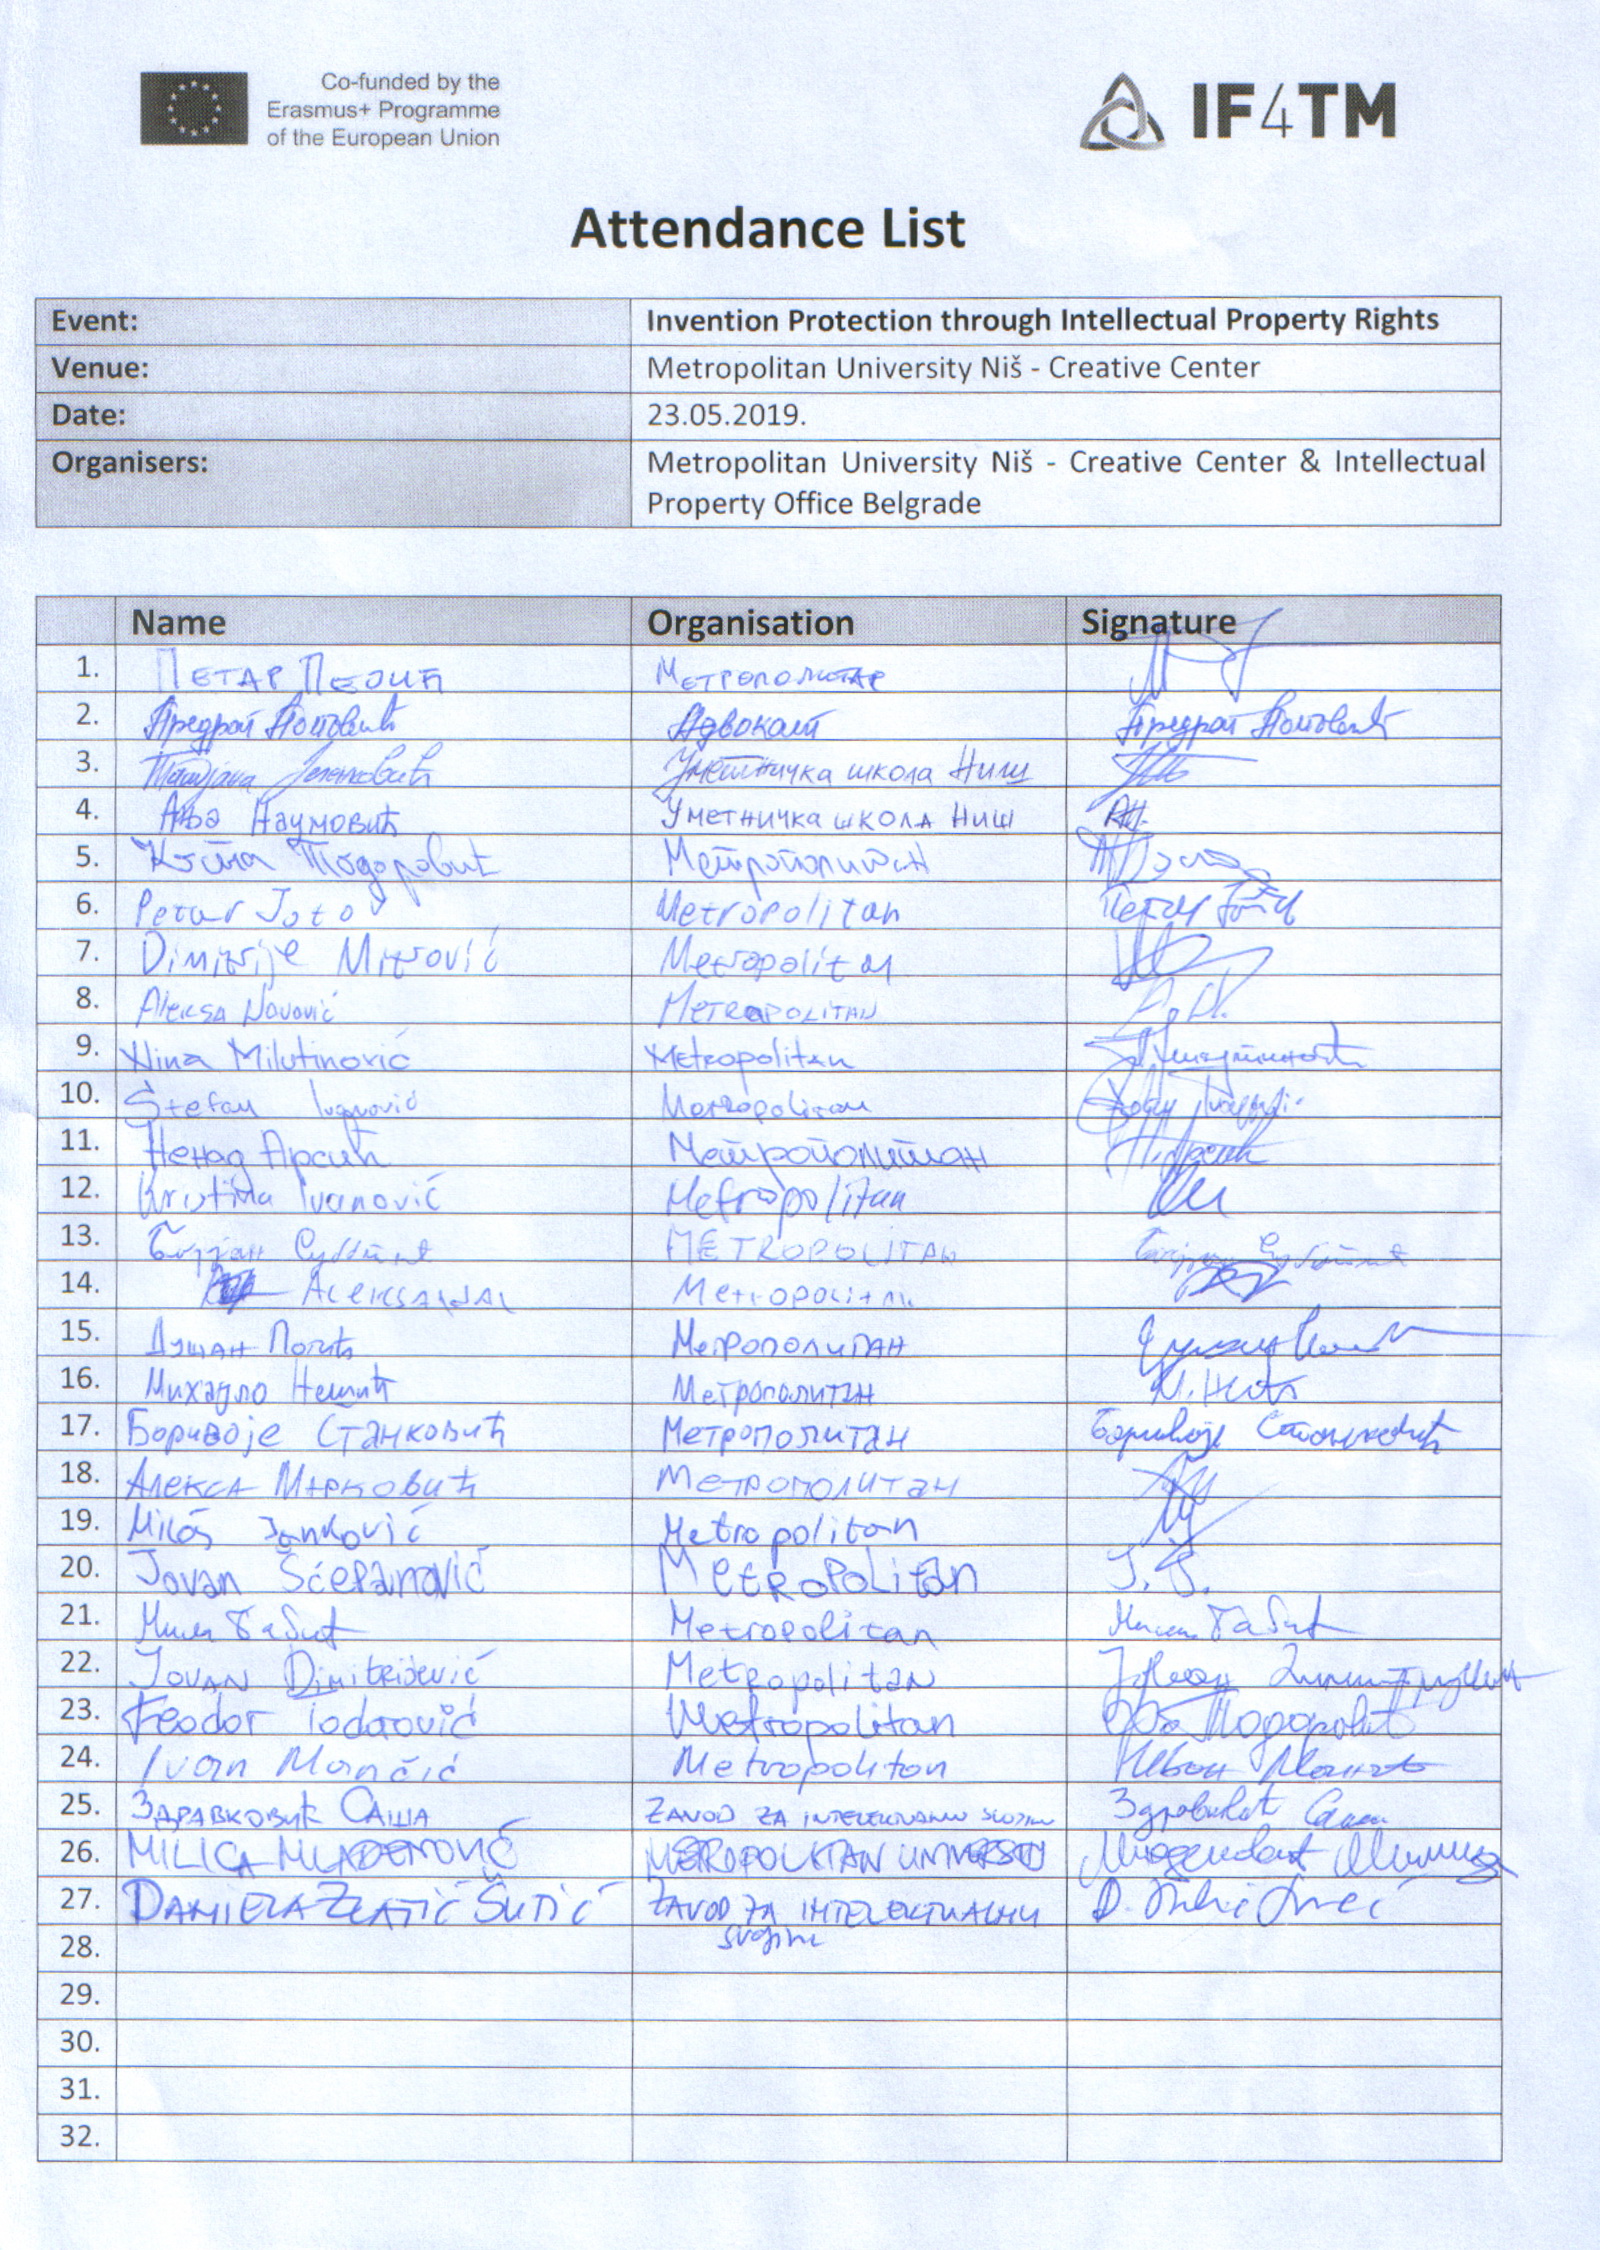 Co-funded by the
Erasmus+ Programme
of the European Union
IF4TM
Attendance List
Event: Invention Protection through Intellectual Property Rights
Venue: Metropolitan University Niš - Creative Center
Date: 23.05.2019.
Organisers: Metropolitan University Niš - Creative Center & Intellectual
Property Office Belgrade
Name Organisation Signature
1. Петар Пејић
2. Предраг Поповић Адвокат Предраг Поповић
3. Татјана Јеленковић Уметничка школа Ниш
4. Ања Наумовић Уметничка школа Ниш
5. Тодоровић Метрополитан
6. Petar Metropolitan
7. Dimitrije Mitrović Metropolitan
8. Aleksa METROPOLITAN
9. Nina Milutinović Metropolitan
10. Stefan Ivanović Metropolitan
11. Ненад Арсић Метрополитан
12. Kristina Ivanović Metropolitan
13. METROPOLITAN
14. Aleksandar Metropolitan
15. Душан Метрополитан
16. Михајло Нешић Метрополитан
17. Боривоје Станковић Метрополитан Боривоје Станковић
18. Алекса Марковић Метрополитан
19. Miloš Janković Metropolitan
20. Jovan Šćepanović Metropolitan J. Š.
21. Metropolitan
22. Jovan Dimitrijević Metropolitan
23. Teodor Todorović Metropolitan
24. Ivan Mančić Metropolitan
25. Здравковић Саша ZAVOD ZA Здравковић Саша
26. MILICA MLADENOVIĆ METROPOLITAN UNIVERSITY Младеновић Милица
27. DANIELA ZLATIĆ ŠUTIĆ ZAVOD ZA INTELEKTUALNU
svojinu
28.
29.
30.
31.
32.